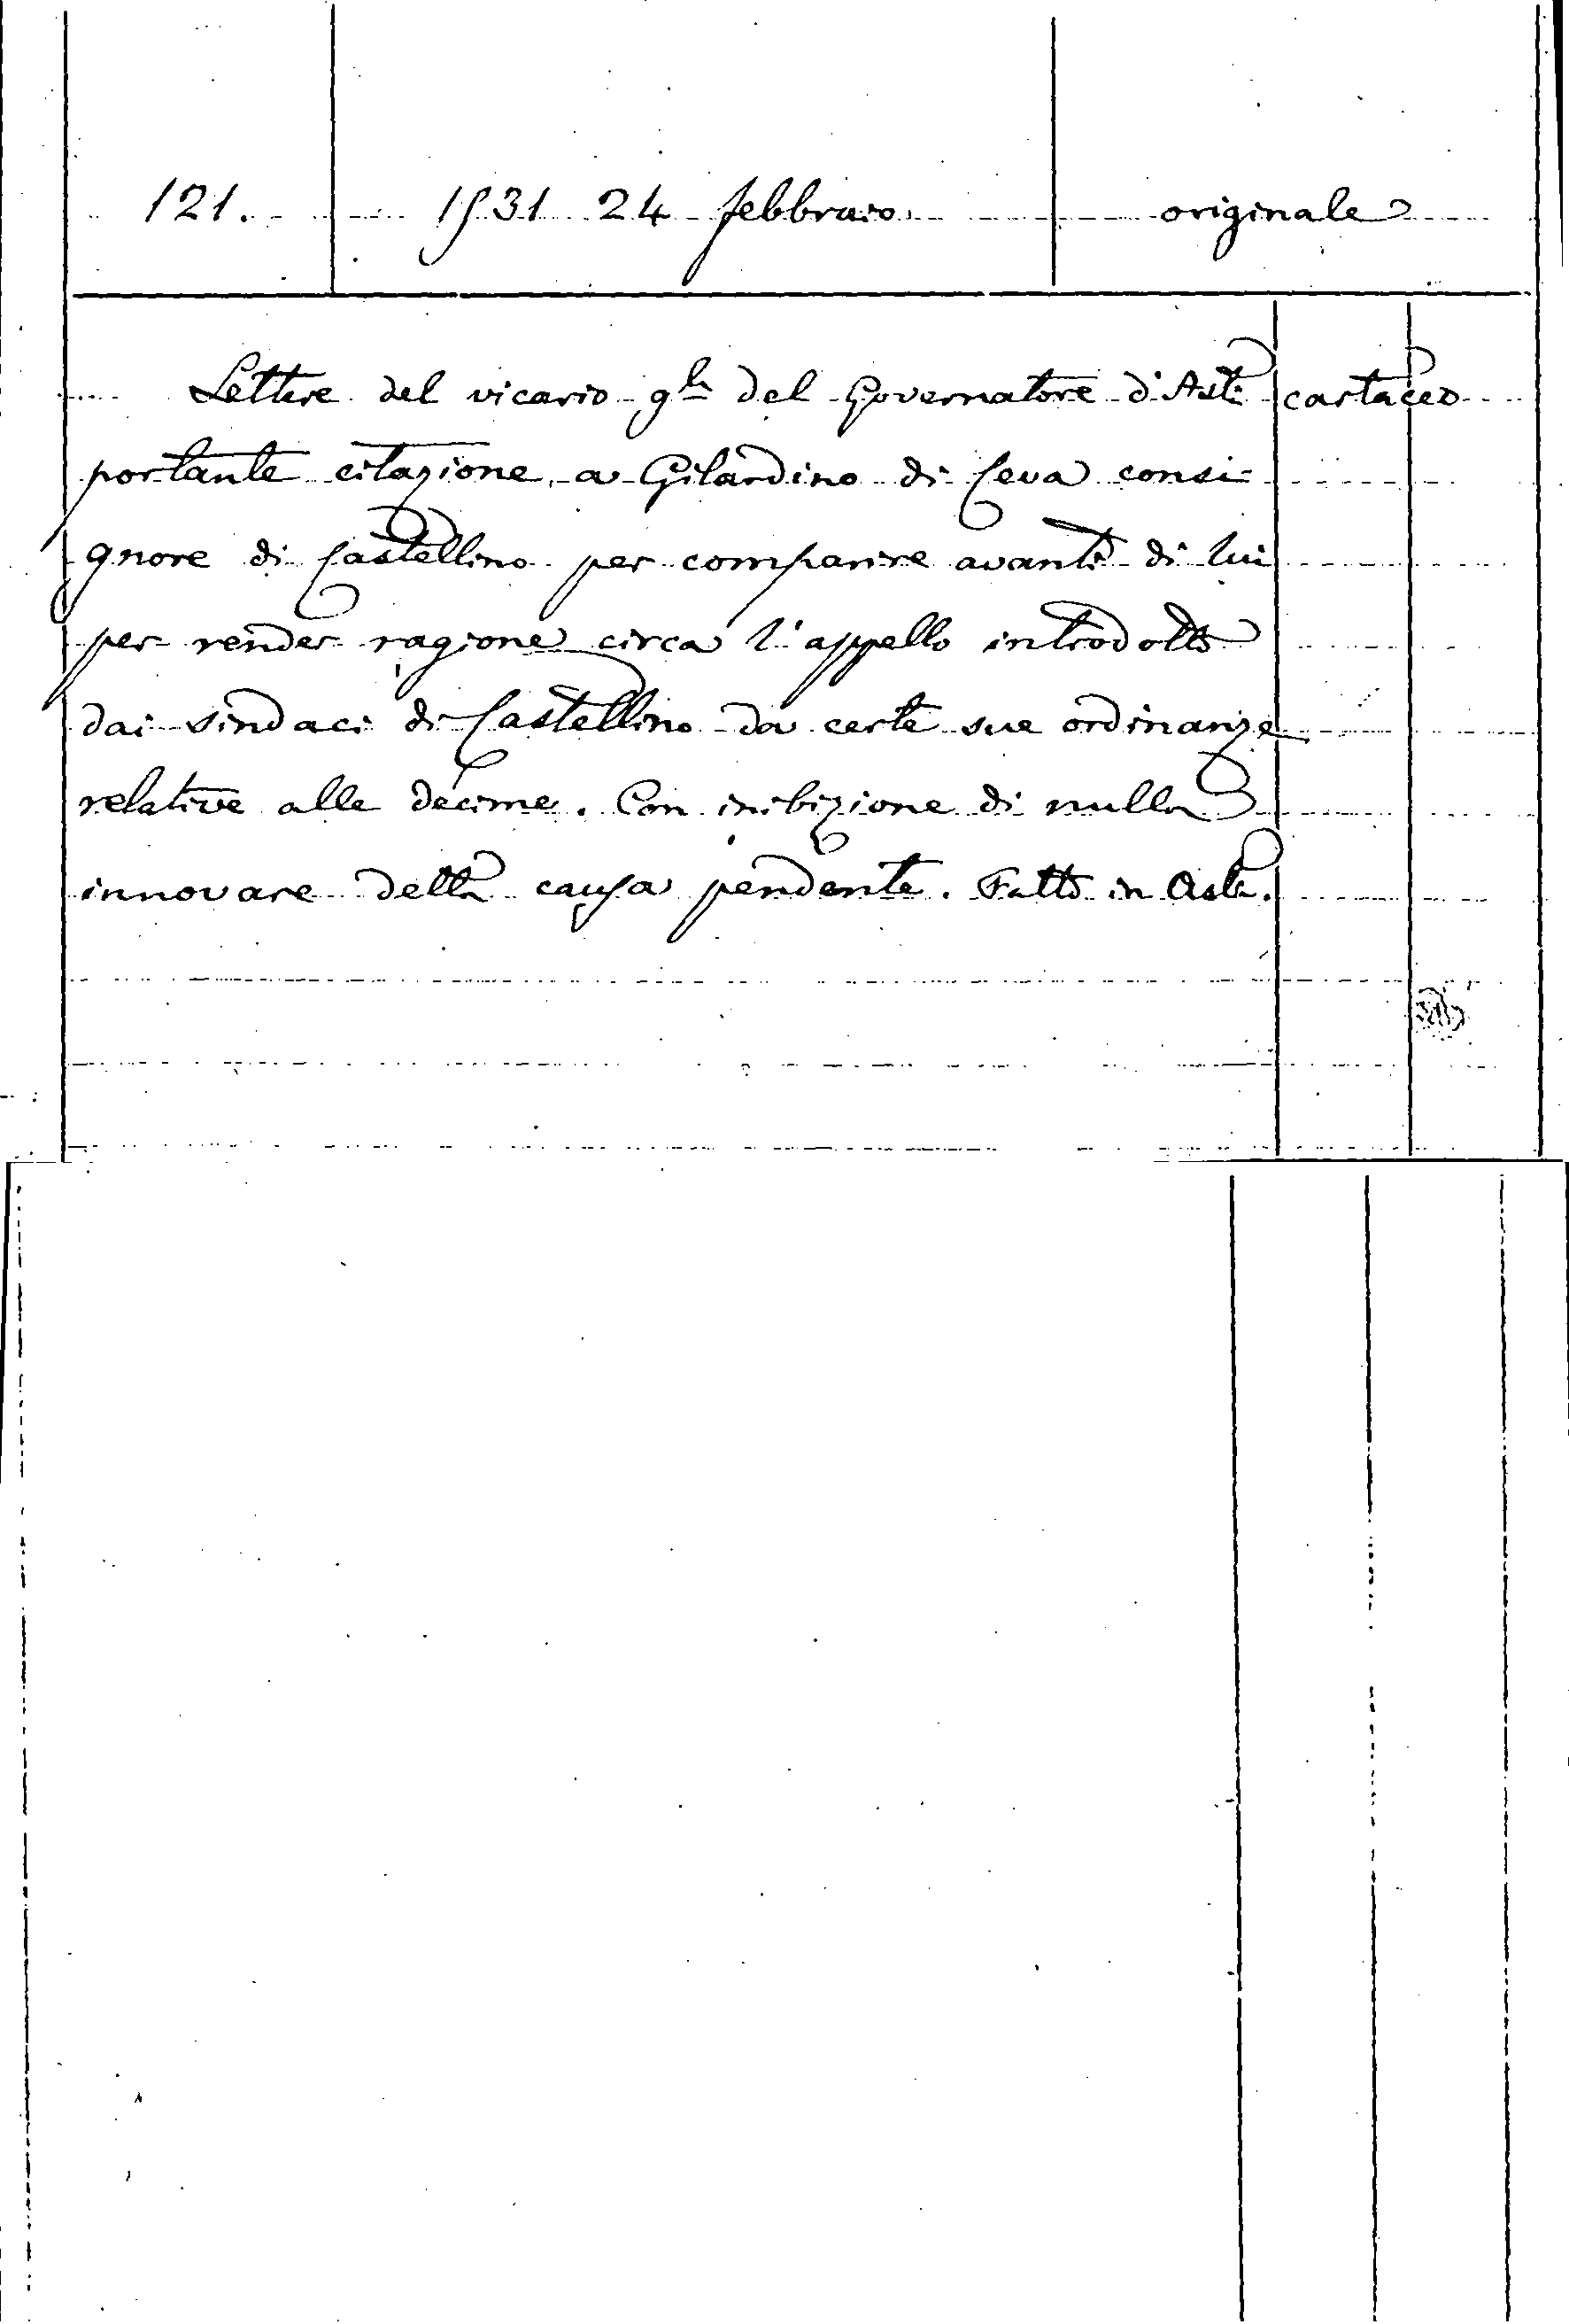 121. 1531 24 febbraio originale
Lettere del vicario g.le del Governatore d'Asti cartaceo
portante citazione a Gilardino di Ceva consi-
gnore di Castellino per comparire avanti di lui
per render ragione circa l'appello introdotto
dai sindaci di Castellino da certe sue ordinanze
relative alle decime. Con inibizione di nulla
innovare detta causa pendente. Fatto in Asti.